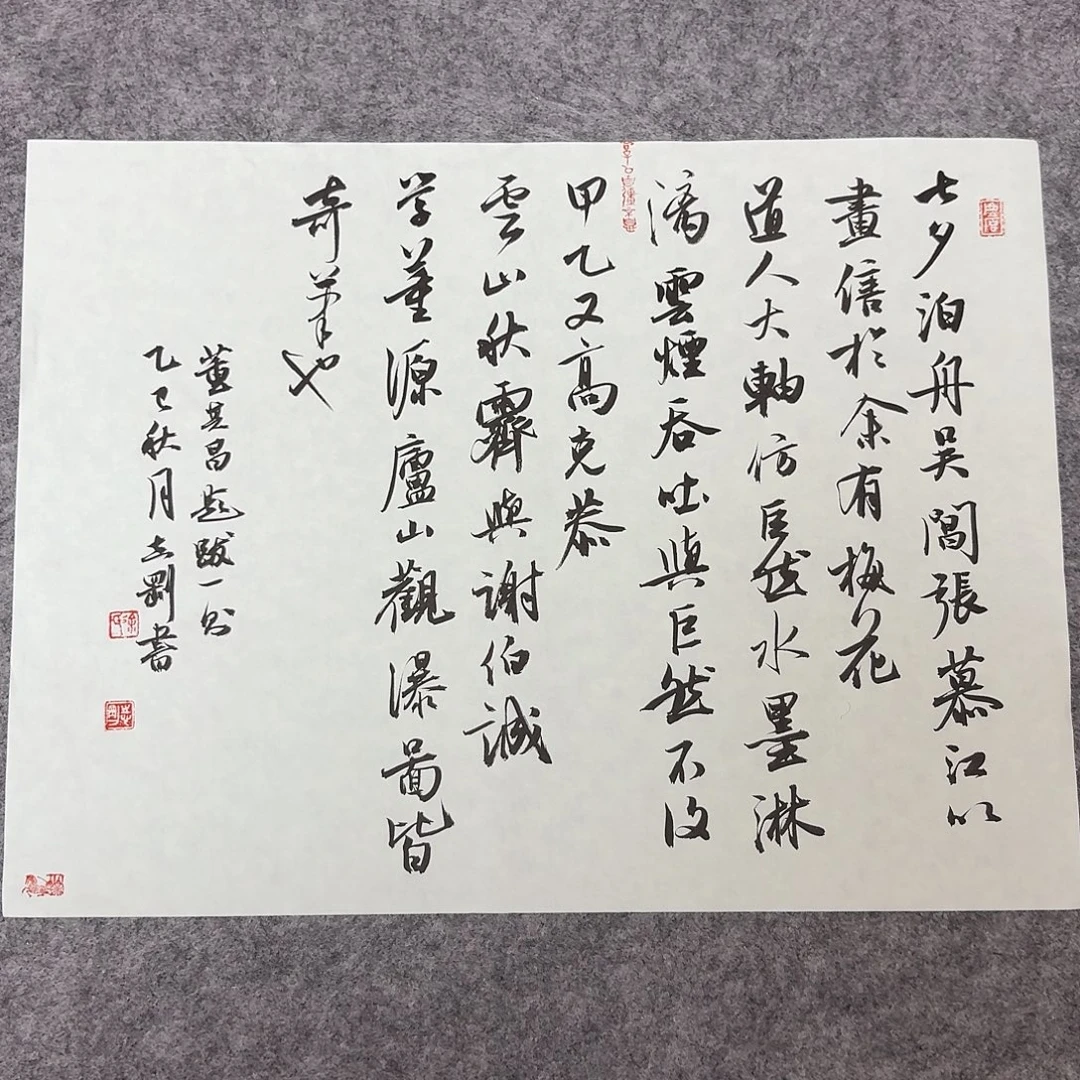 七夕泊舟吴閶張慕江以
畫售於余有梅花
道人大軸仿巨然水墨淋
漓雲煙吞吐與巨然不復
甲乙又高克恭
雲山秋霽與謝伯誠
学董源廬山觀瀑啚皆
奇筆也
董其昌題跋一則
乙巳秋月志剛書